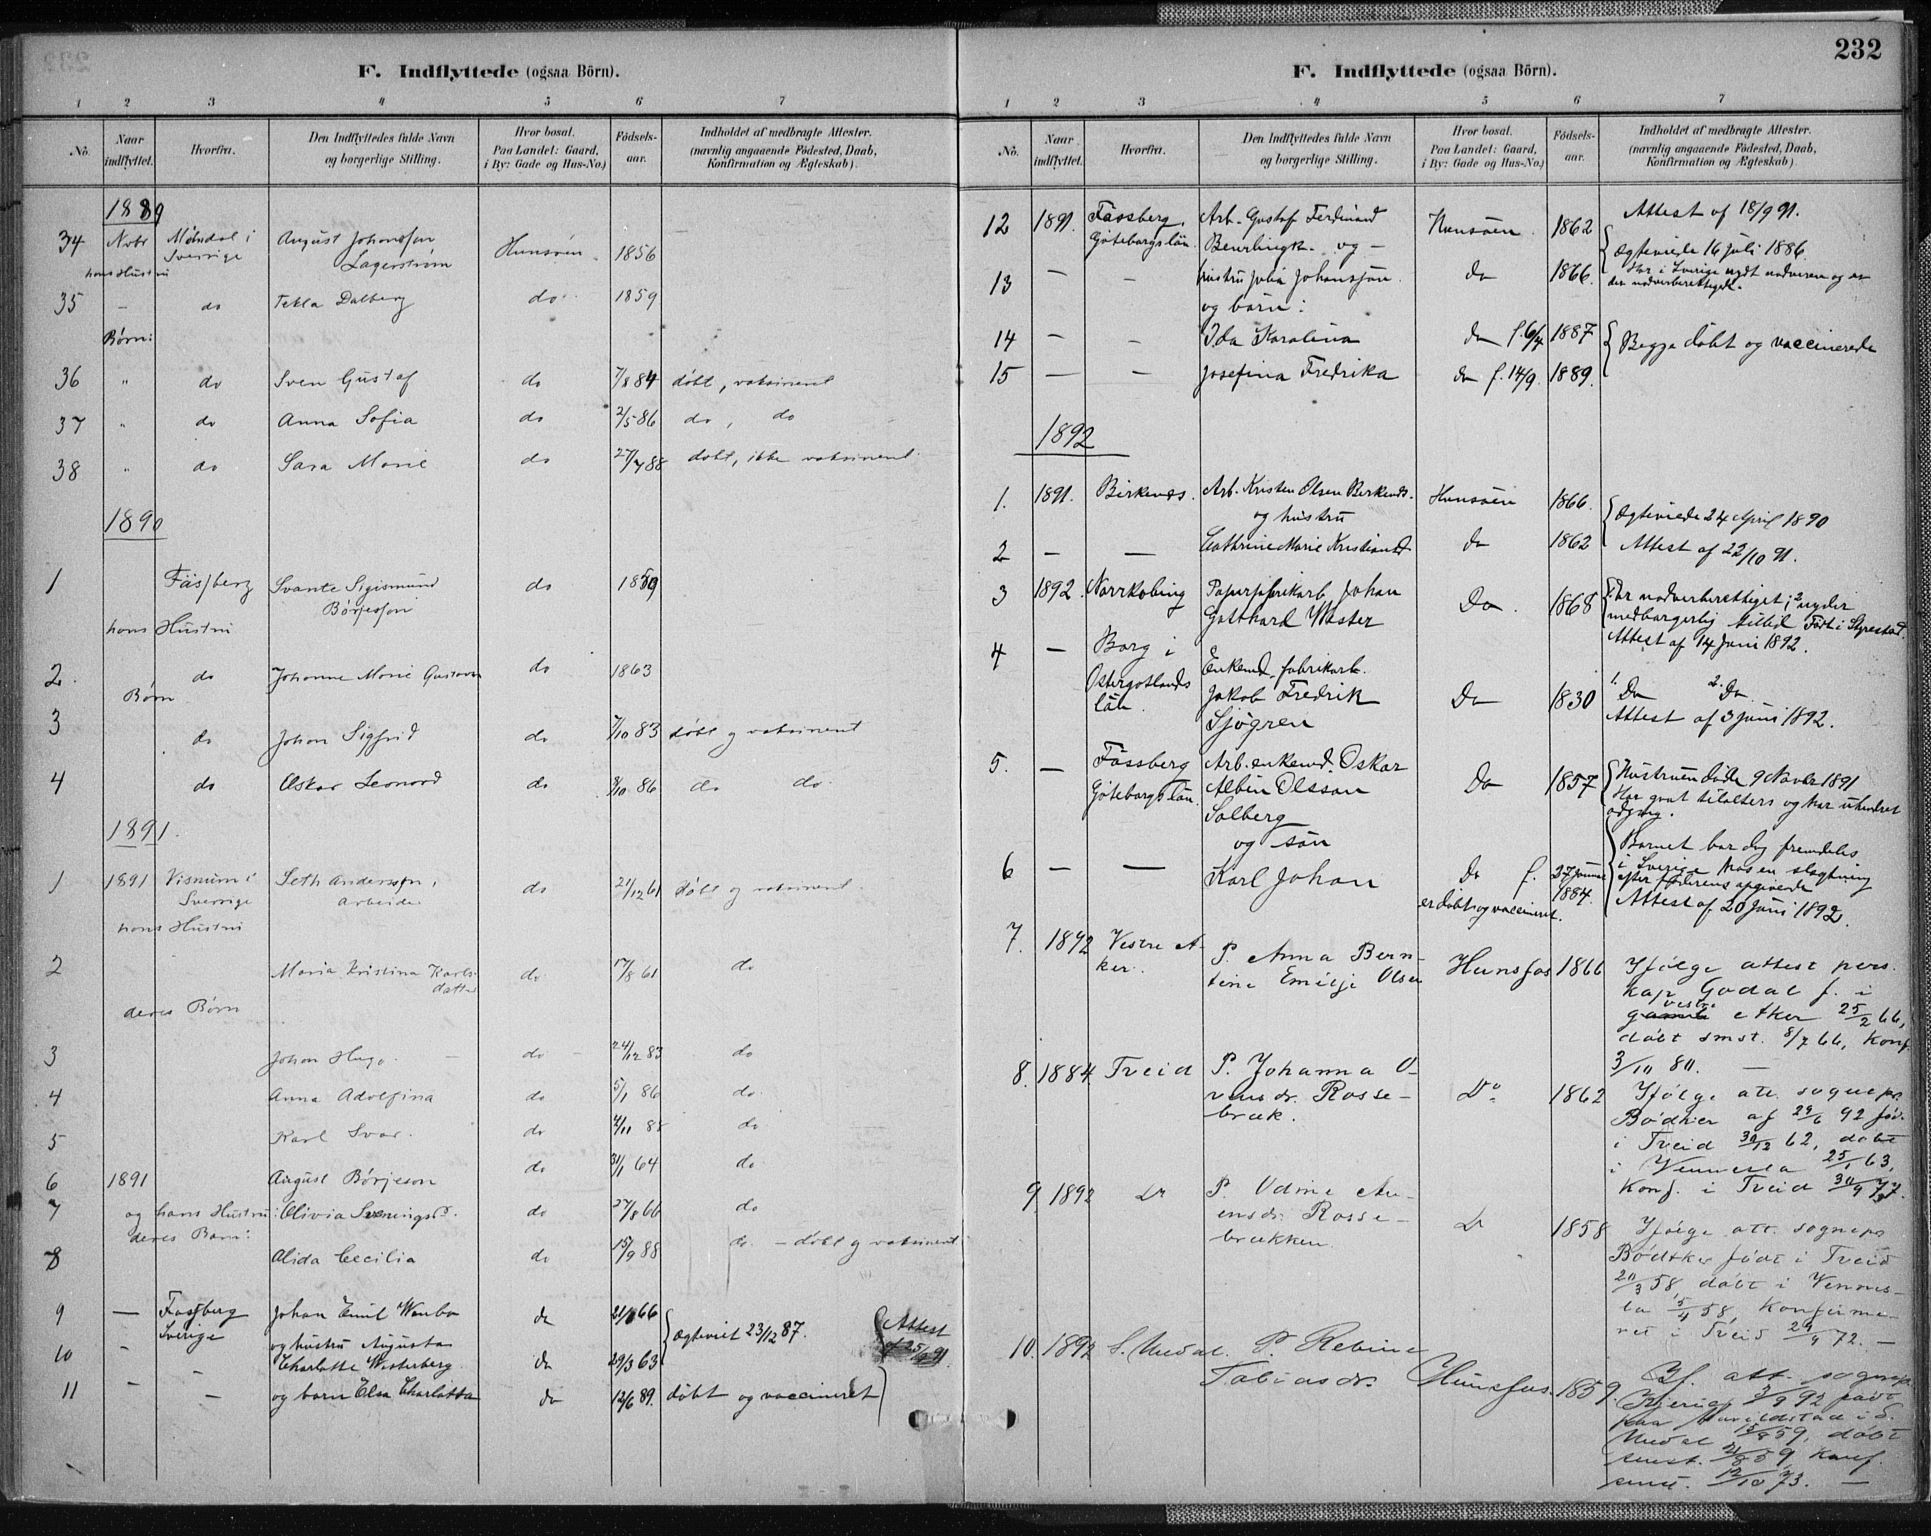 F. Indflyttede (ogsaa Börn).
1 2 3 4 5 6 7
No. Naar indflyttet. Hvorfra. Den Indflyttedes fulde Navn og borgerlige Stilling. Hvor bosat. Paa Landet: Gaard, i By: Gade og Hus-No.) Fødsels-aar. Indholdet af medbragte Attester. (navnlig angaaende Fødested, Daab, Konfirmation og Ægteskab).
1889
34 Novbr Mölndal i Sverrige August Johansson Lagerström Hunsøen 1856
hans Hustru
35 – do Tekla Dalberg do 1859
Børn:
36 " do Sven Gustaf do 7/8 84 døbt, vaksineret
37 " do Anna Sofia do 2/5 86 do, do
38 " do Sara Marie do 27/7 88 døbt, ikke vaksineret
1890
1 Fässberg Svante Sigismund Börjesson do 1859
hans Hustru
2. do Johanne Marie Gustavs do 1863
Børn
3 do Johan Sigfrid do 7/10 83 døbt og vaksineret
4 do Oskar Leonard do 8/10 86 do do
1891.
1 1891 Visnum i Sverrige Seth Andersson, Arbeider do 21/12 61 døbt og vaksineret
hans Hustru
2 Maria Kristina Karls-datter do 17/8 61 do
deres Børn
3 Johan Hugo. do 24/12 83 do
4 Anna Adolfina do 5/1 86 do
5 Karl Ivar. do 4/11 88 do
6 1891 August Börjeson do 31/1 64 do
7 og hans Hustru: Olivia Sveningsd. do 27/8 66 do
deres Barn:
8 Alida Cecilia do 15/9 88 do – døbt og vaksineret
9 — Fassberg Sverige Johan Emil Wenbo do 21/8 66
10 – – og hustru Augusta Charlotte Westerberg do 29/3 63 Ægteviet 23/12 87. Attest af 25/9 91.
11 – – og barn Elsa Charlotta do 12/6 89. døbt og vaccineret
232
F. Indflyttede (ogsaa Börn).
1 2 3 4 5 6 7
No. Naar indflyttet. Hvorfra. Den Indflyttedes fulde Navn og borgerlige Stilling. Hvor bosat. Paa Landet: Gaard, i By: Gade og Hus-No.) Fødsels-aar. Indholdet af medbragte Attester. (navnlig angaaende Fødested, Daab, Konfirmation og Ægteskab).
12 1891. Fässberg, Göteborgslän. Arb. Gustaf Ferdinand og – Hunsøen. 1862 Attest af 18/9 91.
Ægteviede 16 juli 1886.
13 – – hustru Julia Johansson. do 1866. Har i Sverige nydt nadveren og er
og børn:
14 – – Ida Karolina do f. 6/4 1887 Begge døbt og vaccinerede
15 — — Josefina Fredrika do f. 14/9. 1889.
1892
1. 1891. Birkenes. Arb. Kristen Olsen Birkenes. Hunsøen 1866.
og hustru Ægteviede 24 April 1890
2 — — Cathrine Marie Kristiansd. do 1862 Attest af 22/10 91.
3 1892. Norrköping Papirfabrikarb. Johan Gotthard Wester Do. 1868 1. Er nadverberettiget; 2 nyder medborgerlig tillid. Født i Styrestad.
Attest af 14 Juni 1892.
4 — Borg i Ostergotlands län. Enkemd. fabrikarb. Jakob Fredrik Sjögren Do 1830 1. Do 2. Do
Attest af 3 juni 1892.
5. — Fässberg Göteborgs län. Arb. enkemd. Oskar Albin Olsson Solberg Do 1857 Hustruen døde 9 Novbr 1891
Har gaat tilalters og har uhindret adgang.
og søn
6 — — Karl Johan Do f. 27 Januar 1884. Barnet bor dog fremdeles i Sverige hos en slægtning efter faderens opgivende
er døbt og vaccineret. Attest af 20 Juni 1892.
7. 1892 Vestre Aker. P. Anna Berntine Emilje Olsen Hunsfos 1866 Ifølge attest pers. kap Godal f. i vestre Aker 25/2 66, døbt smst. 8/7 66, Konf. 3/10 80. —
8. 1884 Tveid P. Johanna O-vensdr. Rosse-bræk. Do 1862 Ifølge att. sognepr. Bødtker af 29/6 92 fød. i Tveid 30/12 62, døbt i Vennesla 25/1 63, Konf. i Tveid 30/9 77.
9 1892 Do P. Udine Au-ensdr. Rosse-brækken. Do 1858 Ifølge att. sognepr Bødtker født i Tveid 20/3 58, døbt i Vennes-la 5/4 58, Konfirme-ret i Tveid 29/9 72. —
10. 1892 S. Undal. P. Rebine Tobiasdr. Hunsfos. 1859. If. att. sognepr 3/9 92 født paa i S. Undal 15/8 59, døbt smst. 59 Konf. smst. 12/10 73. —